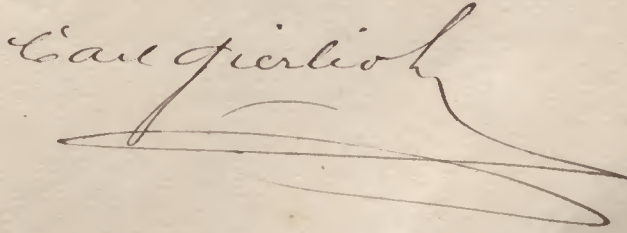 Carl Gierlich